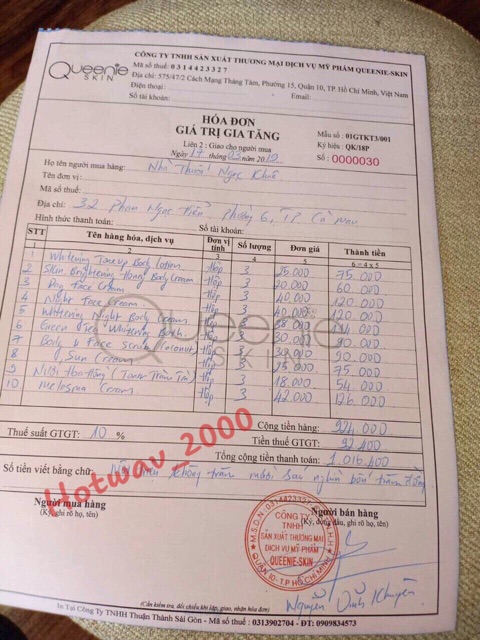 Queenie
SKIN
CÔNG TY TNHH SẢN XUẤT THƯƠNG MẠI DỊCH VỤ MỸ PHẨM QUEENIE-SKIN
Mã số thuế: 0314423327
Địa chỉ: 575/47/2 Cách Mạng Tháng Tám, Phường 15, Quận 10, TP. Hồ Chí Minh, Việt Nam
Điện thoại: Email:
Số tài khoản:
HÓA ĐƠN
GIÁ TRỊ GIA TĂNG
Liên 2 : Giao cho người mua
Ngày 17 tháng 03 năm 2019
Mẫu số : 01GTKT3/001
Ký hiệu : QK/18P
Số : 0000030
Họ tên người mua hàng: Nhà Thuốc Ngọc Khuê
Tên đơn vị:
Mã số thuế:
Địa chỉ: 32 Phan Ngọc Hiển, Phường 6, TP Cà Mau
Hình thức thanh toán: Số tài khoản:
STT Tên hàng hóa, dịch vụ Đơn vị tính Số lượng Đơn giá Thành tiền
1 2 3 4 5 6 = 4 x 5
1 Whitening Toneup Body Lotion Hộp 3 25.000 75.000
2 Skin Brightening Body Cream Hộp 3 20.000 60.000
3 Day Face Cream Hộp 3 40.000 120.000
4 Night Face Cream Hộp 3 40.000 120.000
5 Whitening Night Body Cream Hộp 3
6 Green Tea Whitening Bath Hộp 3 30.000 90.000
7 Body & Face Scrub (coconut) Hộp 3 30.000 90.000
8 Sun Cream Hộp 3 25.000 75.000
9 Nước Hoa Hồng (Toner Tràm Trà) Hộp 3 18.000 54.000
10 Melasma Cream Hộp 3 42.000 126.000
Queenie
SKIN
Cộng tiền hàng: 924.000
Thuế suất GTGT: 10 % Tiền thuế GTGT: 92.400
Tổng cộng tiền thanh toán: 1.016.400
Số tiền viết bằng chữ: Một triệu không trăm mười sáu nghìn bốn trăm đồng
Hotwav_2000
Người mua hàng
(Ký, ghi rõ họ, tên)
Người bán hàng
(Ký, đóng dấu, ghi rõ họ, tên)
M.S.D.N: 0314423327
CÔNG TY
TNHH
SẢN XUẤT THƯƠNG MẠI
DỊCH VỤ MỸ PHẨM
QUEENIE-SKIN
QUẬN 10 - T.P HỒ CHÍ MINH
Nguyễn Đình Khuyến
(Cần kiểm tra, đối chiếu khi lập, giao, nhận hóa đơn)
In Tại Công Ty TNHH Thuận Thành Sài Gòn - Mã số thuế : 0313902704 - ĐT: 0909834573